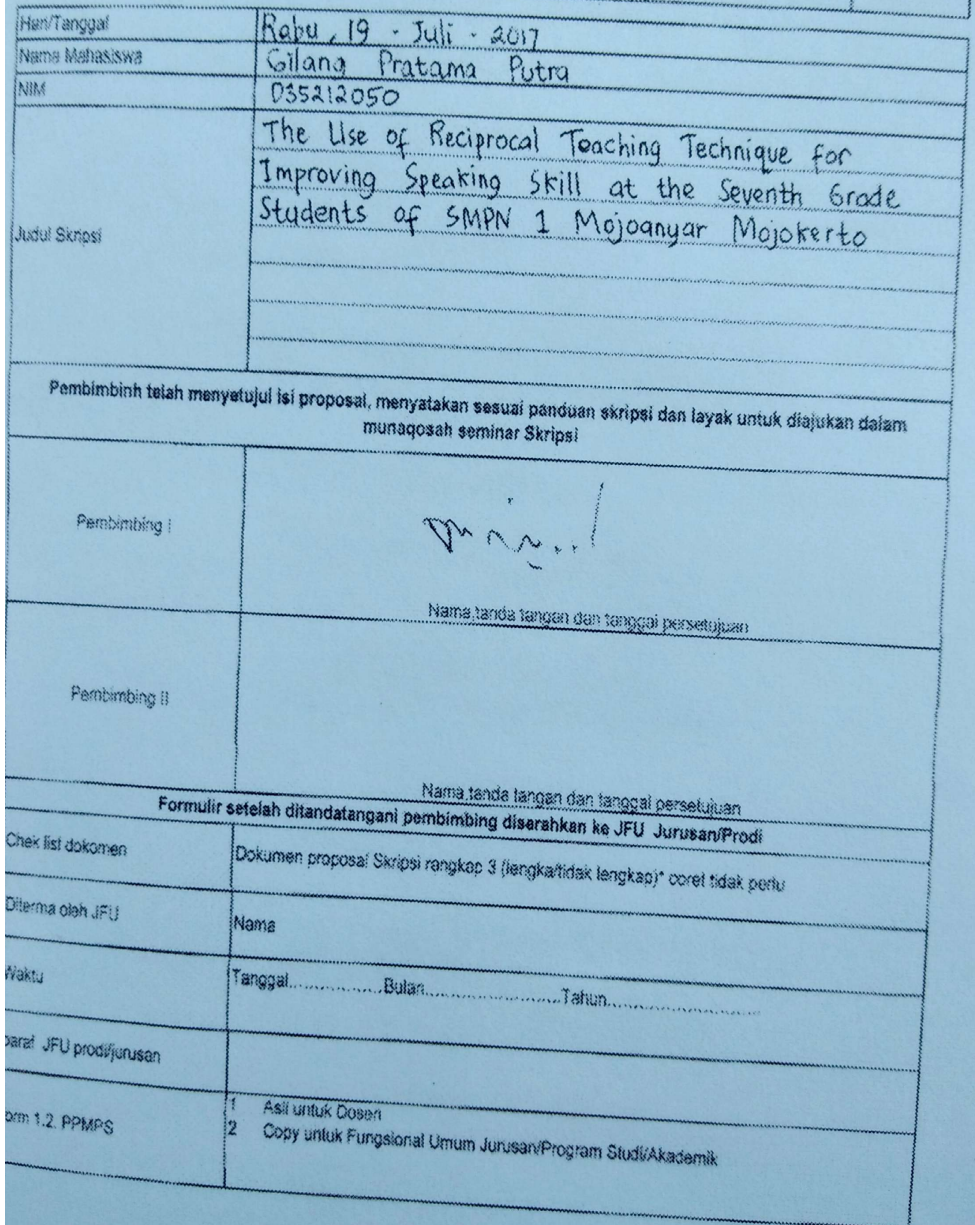 Hari/Tanggal Rabu, 19 - Juli - 2017
Nama Mahasiswa Gilang Pratama Putra
NIM D35212050
Judul Skripsi
The Use of Reciprocal Teaching Technique for
Improving Speaking Skill at the Seventh Grade
Students of SMPN 1 Mojoanyar Mojokerto
Pembimbinh telah menyetujui isi proposal, menyatakan sesuai panduan skripsi dan layak untuk diajukan dalam
munaqosah seminar Skripsi
Pembimbing I
Nama,tanda tangan dan tanggal persetujuan
Pembimbing II
Nama,tanda tangan dan tanggal persetujuan
Formulir setelah ditandatangani pembimbing diserahkan ke JFU Jurusan/Prodi
Chek list dokomen Dokumen proposal Skripsi rangkap 3 (lengka/tidak lengkap)* coret tidak perlu
Diterma oleh JFU Nama
Waktu Tanggal................Bulan........................Tahun...........................
paraf JFU prodi/jurusan
orm 1.2. PPMPS
1 Asli untuk Dosen
2 Copy untuk Fungsional Umum Jurusan/Program Studi/Akademik